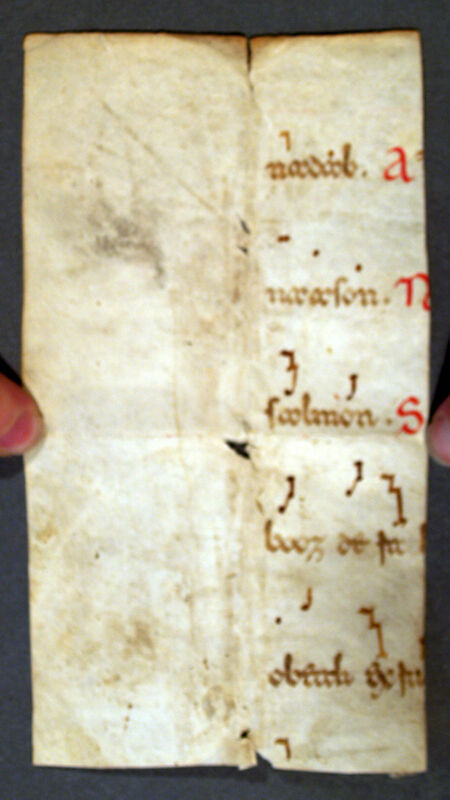 nadab. A
naason. N
salmon. S
booz de
obeth ex